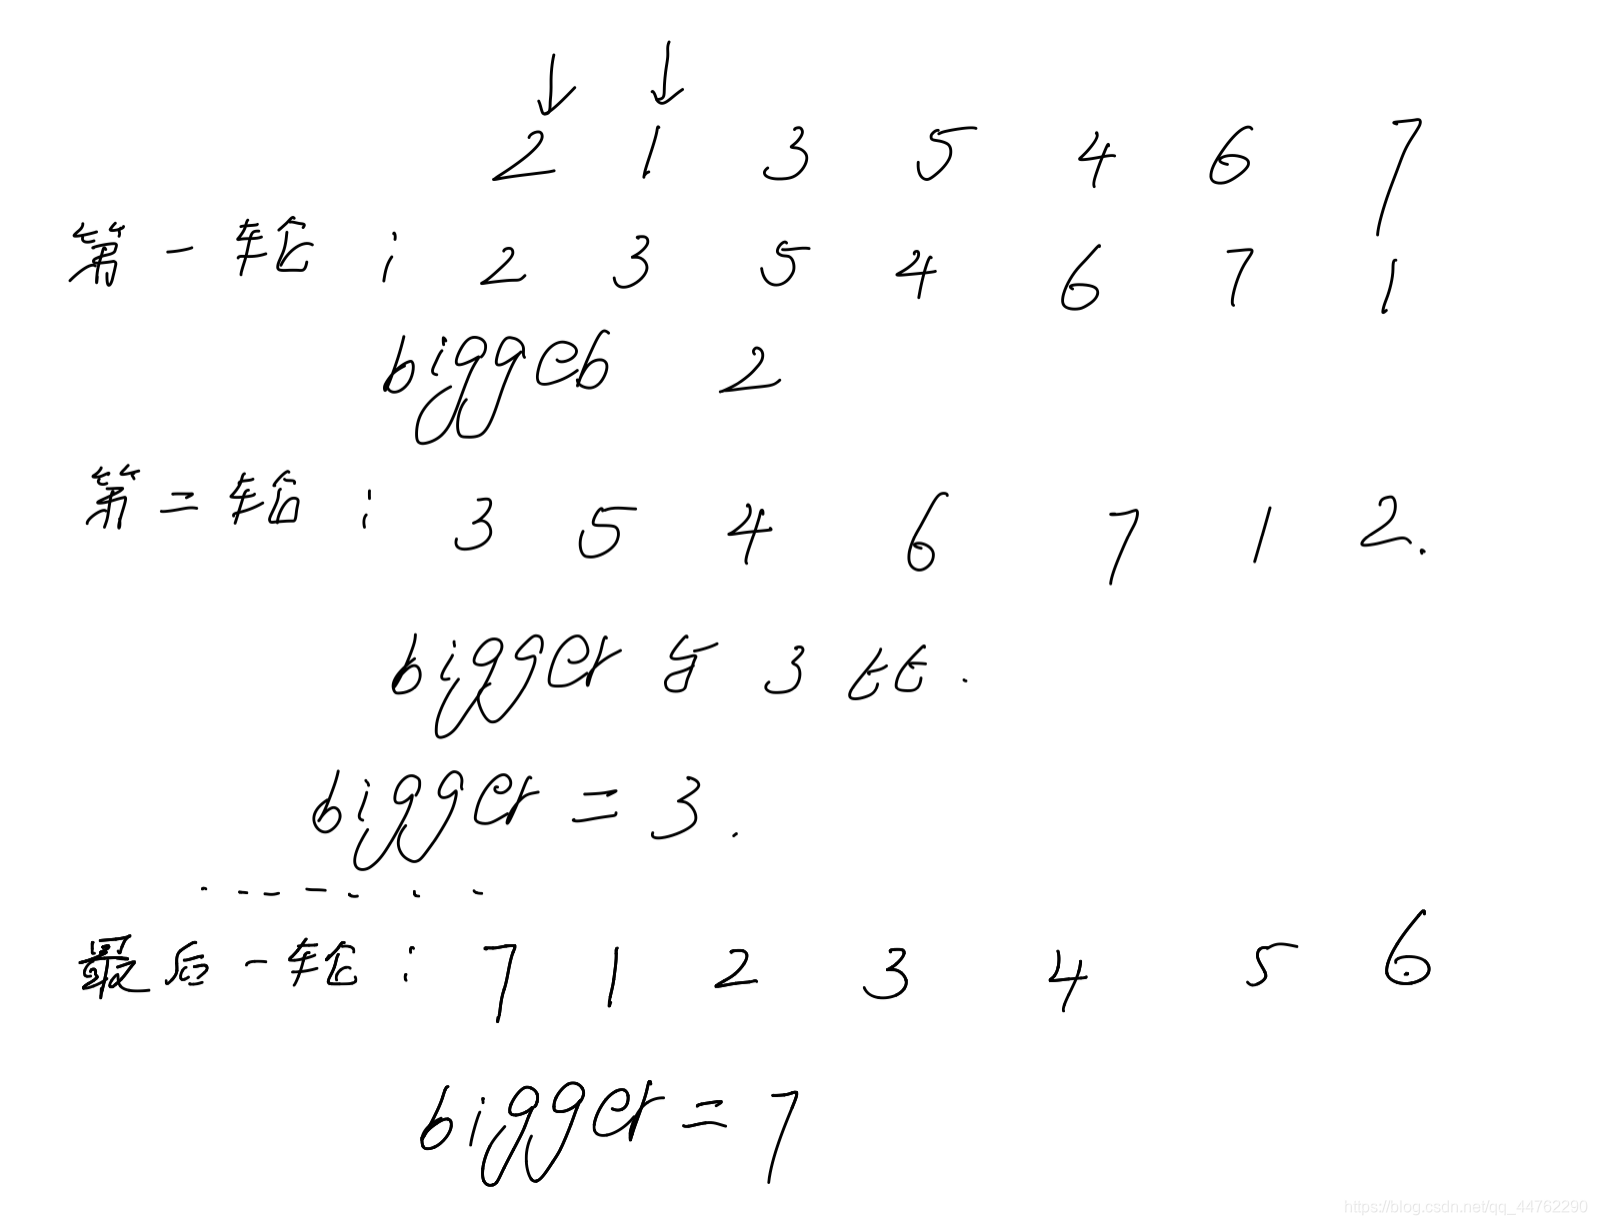 ↓ ↓
2 1 3 5 4 6 7
第一轮: 2 3 5 4 6 7 1
bigger 2
第二轮: 3 5 4 6 7 1 2.
bigger 与 3 比.
bigger = 3.
.......
最后一轮: 7 1 2 3 4 5 6
bigger = 7
https://blog.csdn.net/qq_44762290